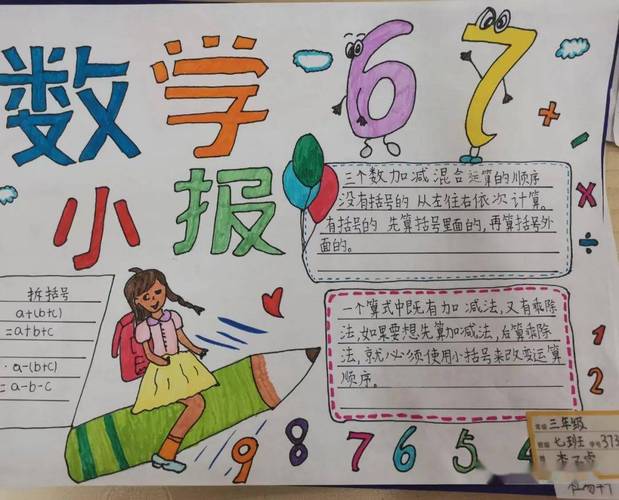 数学
67
小报
三个数加减混合运算的顺序
没有括号的 从左往右依次计算。
有括号的 先算括号里面的,再算括号外
面的。
拆括号
a+(b+c)
=a+b+c
a-(b+c)
=a-b-c
一个算式中既有加 减法,又有乘除
法,如果要想先算加减法,后算乘除
法,就必须使用小括号来改变运算
顺序。
+
-
×
÷
1
2
9 8 7 6 5 4
年级 三年级
班级 七班 学号 373